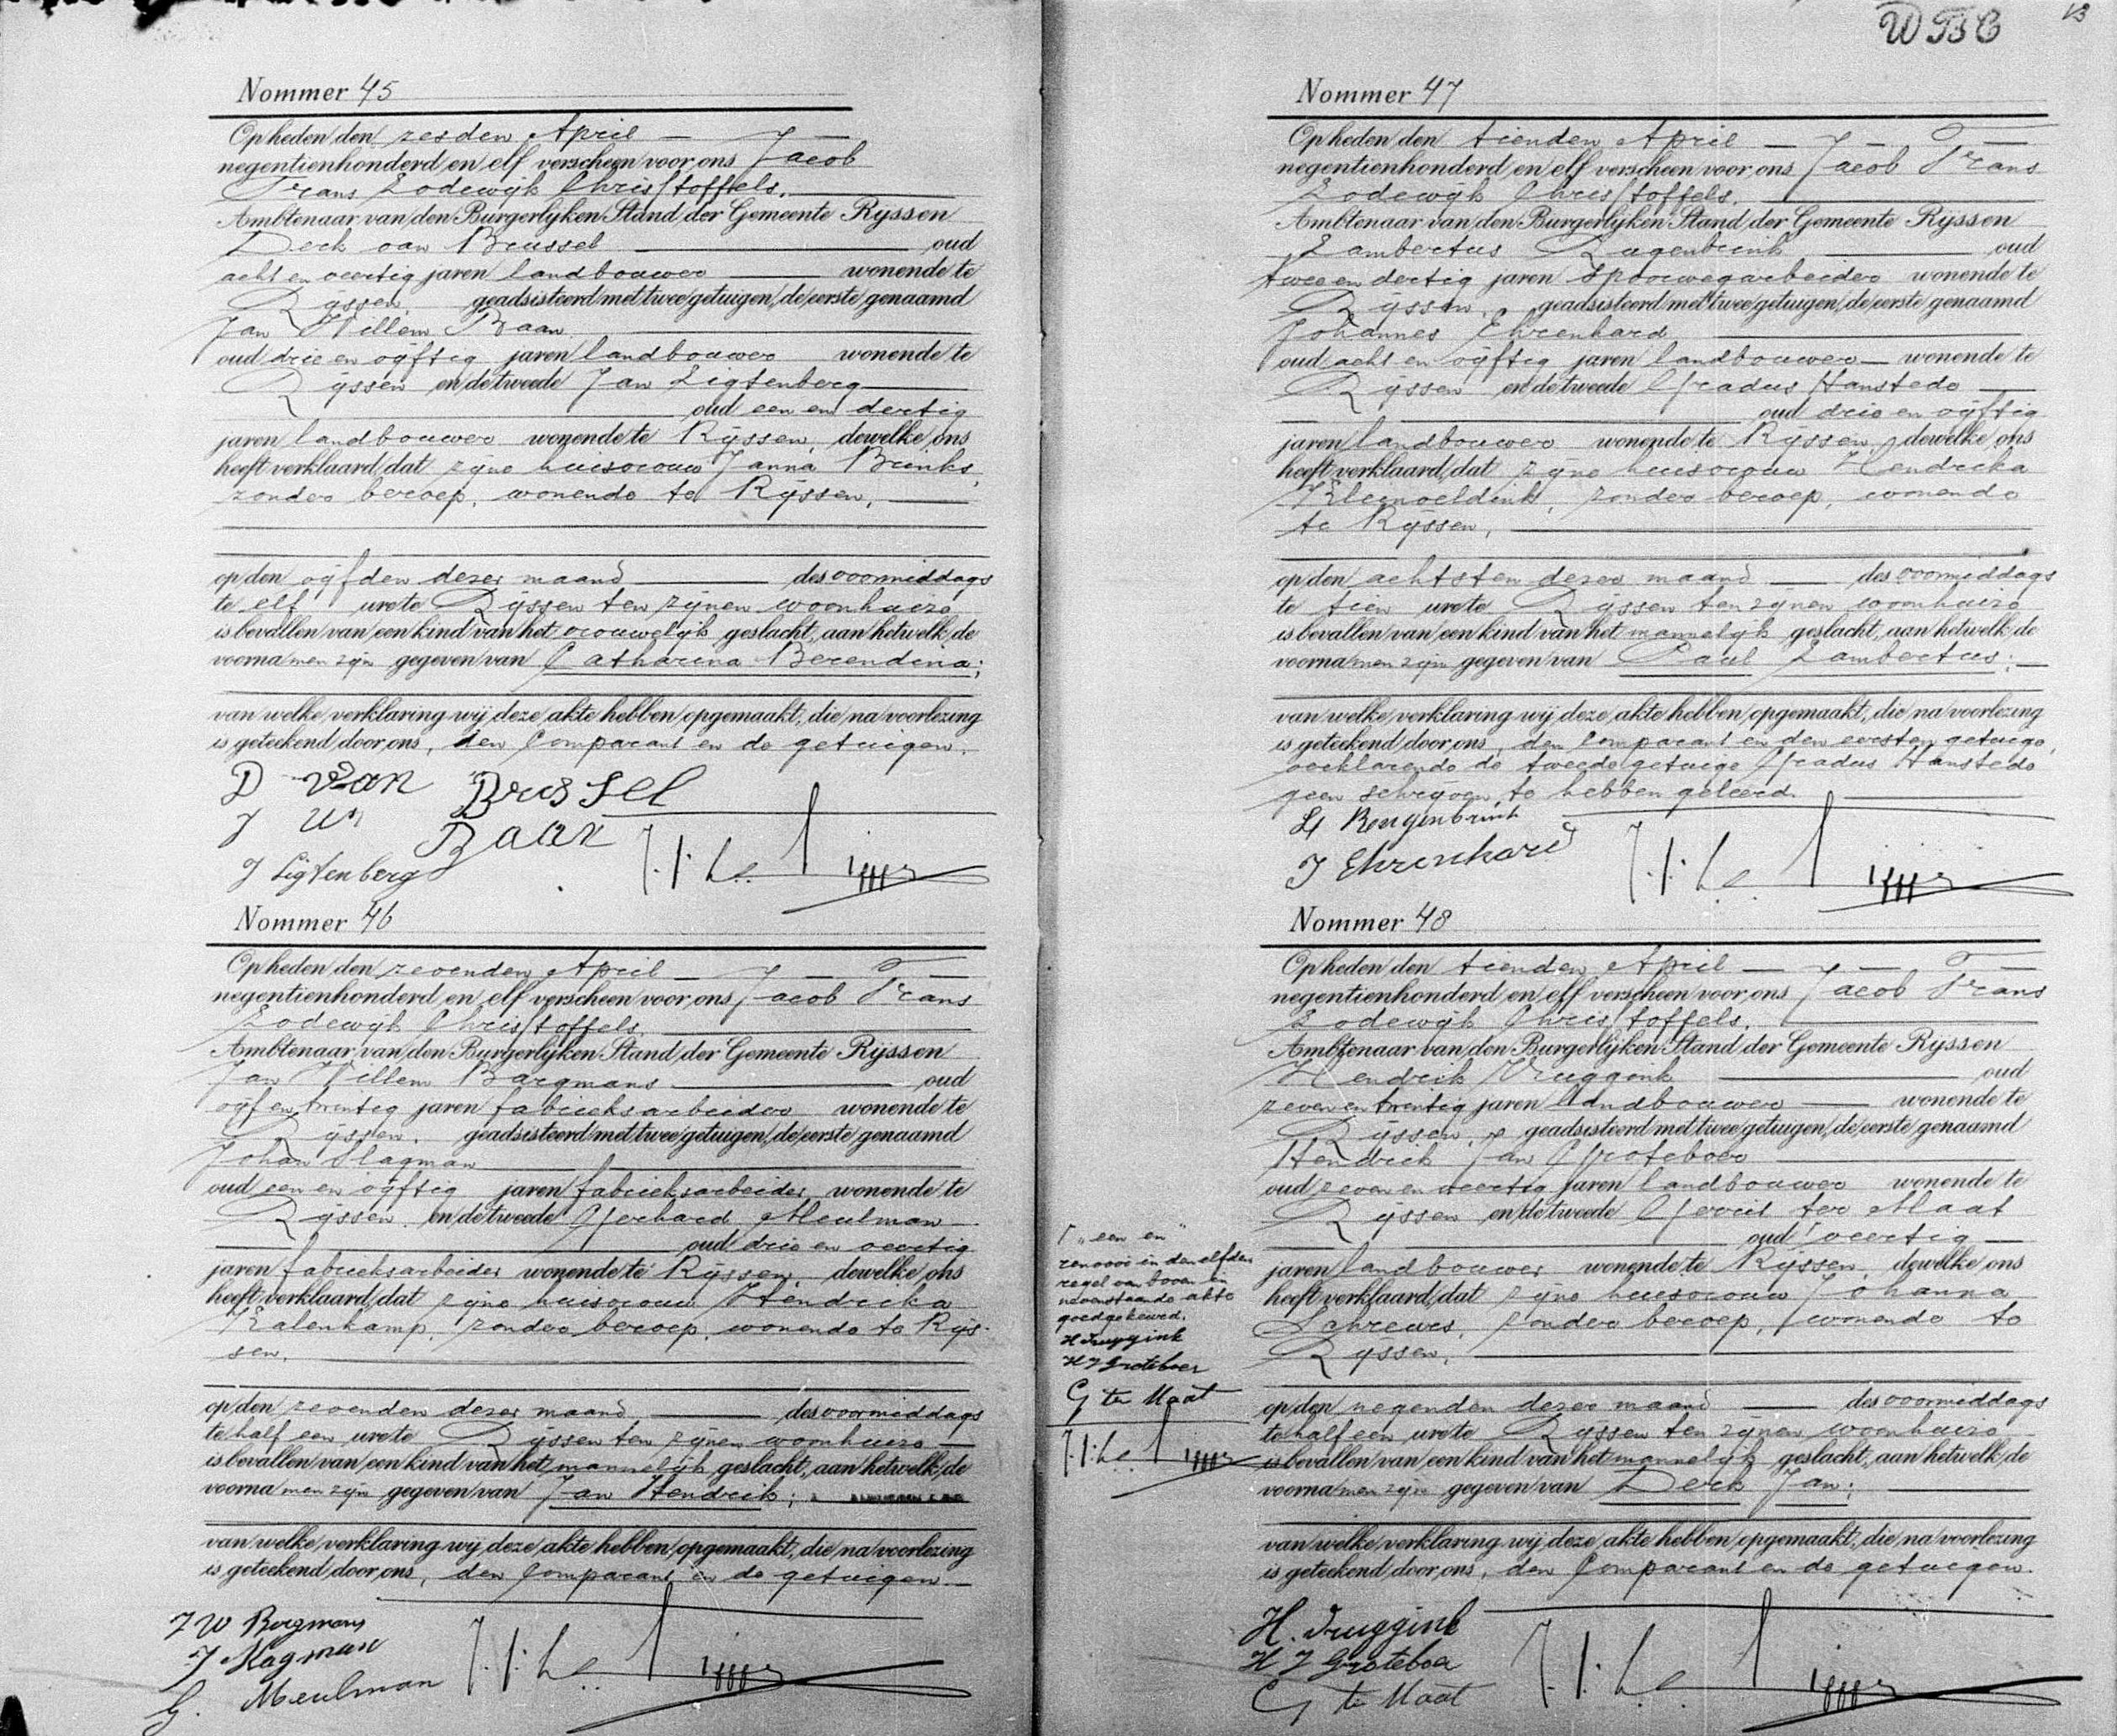 Nommer 45
Op heden den zesden April
negentienhonderd en elf verscheen voor ons Jacob
Frans Lodewijk Christoffels.
Ambtenaar van den Burgerlyken Stand der Gemeente Ryssen
Derk van Brussel oud
acht en veertig jaren landbouwer wonende te
Ryssen, geadsisteerd met twee getuigen, de eerste genaamd
Jan Willem Baan
oud drie en vijftig jaren landbouwer wonende te
Rijssen en de tweede Jan Ligtenberg
oud een en dertig
jaren landbouwer wonende te Rijssen, dewelke ons
heeft verklaard, dat zijne huisvrouw Janna Brinks,
zonder beroep, wonende te Rijssen,
op den vijfden dezer maand des voormiddags
te elf ure te Rijssen ten zijnen woonhuize
is bevallen van een kind van het vrouwelijk geslacht, aan hetwelk de
voornamen zijn gegeven van Catharina Berendina;
van welke verklaring wij deze akte hebben opgemaakt, die na voorlezing
is geteekend door ons, den Comparant en de getuigen.
D van Brussel
J W Baan
J Ligtenberg
Nommer 46
Op heden den zevenden April
negentienhonderd en elf verscheen voor ons Jacob Frans
Lodewijk Christoffels.
Ambtenaar van den Burgerlyken Stand der Gemeente Ryssen
Jan Willem Bargmans oud
vijf en twintig jaren fabrieksarbeider wonende te
Rijssen, geadsisteerd met twee getuigen, de eerste genaamd
Johan Slagman
oud een en vijftig jaren fabrieksarbeider wonende te
Rijssen en de tweede Gerhard Meulman
oud drie en veertig
jaren fabrieksarbeider wonende te Rijssen, dewelke ons
heeft verklaard, dat zijne huisvrouw Hendrika
Kalenkamp, zonder beroep, wonende te Rijs-
sen,
op den zevenden dezer maand des voormiddags
te half een ure te Rijssen ten zijnen woonhuize
is bevallen van een kind van het mannelijk geslacht, aan hetwelk de
voornamen zijn gegeven van Jan Hendrik;
van welke verklaring wij deze akte hebben opgemaakt, die na voorlezing
is geteekend door ons, den Comparant en de getuigen.
J W Bargmans
J Slagman
G. Meulman
WBC
Nommer 47
Op heden den tienden April
negentienhonderd en elf verscheen voor ons Jacob Frans
Lodewijk Christoffels.
Ambtenaar van den Burgerlyken Stand der Gemeente Ryssen
Lambertus Rugenbrink oud
twee en dertig jaren spoorwegarbeider wonende te
Rijssen, geadsisteerd met twee getuigen, de eerste genaamd
Johannes Ehrenhard
oud acht en vijftig jaren landbouwer wonende te
Rijssen en de tweede Gradus Hanstede
oud drie en vijftig
jaren landbouwer wonende te Rijssen, dewelke ons
heeft verklaard, dat zijne huisvrouw Hendrika
zonder beroep, wonende
te Rijssen,
op den achtsten dezer maand des voormiddags
te tien ure te Rijssen ten zijnen woonhuize
is bevallen van een kind van het mannelijk geslacht, aan hetwelk de
voornamen zijn gegeven van Paul Lambertus;
van welke verklaring wij deze akte hebben opgemaakt, die na voorlezing
is geteekend door ons, den Comparant en den eersten getuige,
verklarende de tweede getuige Gradus Hanstede
geen schrijven te hebben geleerd.
J Ehrenhard
Nommer 48
Op heden den tienden April
negentienhonderd en elf verscheen voor ons Jacob Frans
Lodewijk Christoffels.
Ambtenaar van den Burgerlyken Stand der Gemeente Ryssen
Hendrik Vruggink oud
zeven en twintig jaren landbouwer wonende te
Rijssen, geadsisteerd met twee getuigen, de eerste genaamd
Hendrik Jan Groteboer
oud zeven en veertig jaren landbouwer wonende te
Rijssen en de tweede Gerrit ter Maat
oud ⌈ veertig
jaren landbouwer wonende te Rijssen, dewelke ons
heeft verklaard, dat zijne huisvrouw Johanna
Schreurs, zonder beroep, wonende te
Rijssen,
op den negenden dezer maand des voormiddags
te half een ure te Rijssen ten zijnen woonhuize
is bevallen van een kind van het mannelijk geslacht, aan hetwelk de
voornamen zijn gegeven van Derk Jan;
van welke verklaring wij deze akte hebben opgemaakt, die na voorlezing
is geteekend door ons, den Comparant en de getuigen.
H. Vruggink
H J Groteboer
G te Maat
⌈ "een en"
renvooi in den elfden
regel van boven en
nevenstaande akte
goedgekeurd.
H Vruggink
H J Groteboer
G te Maat